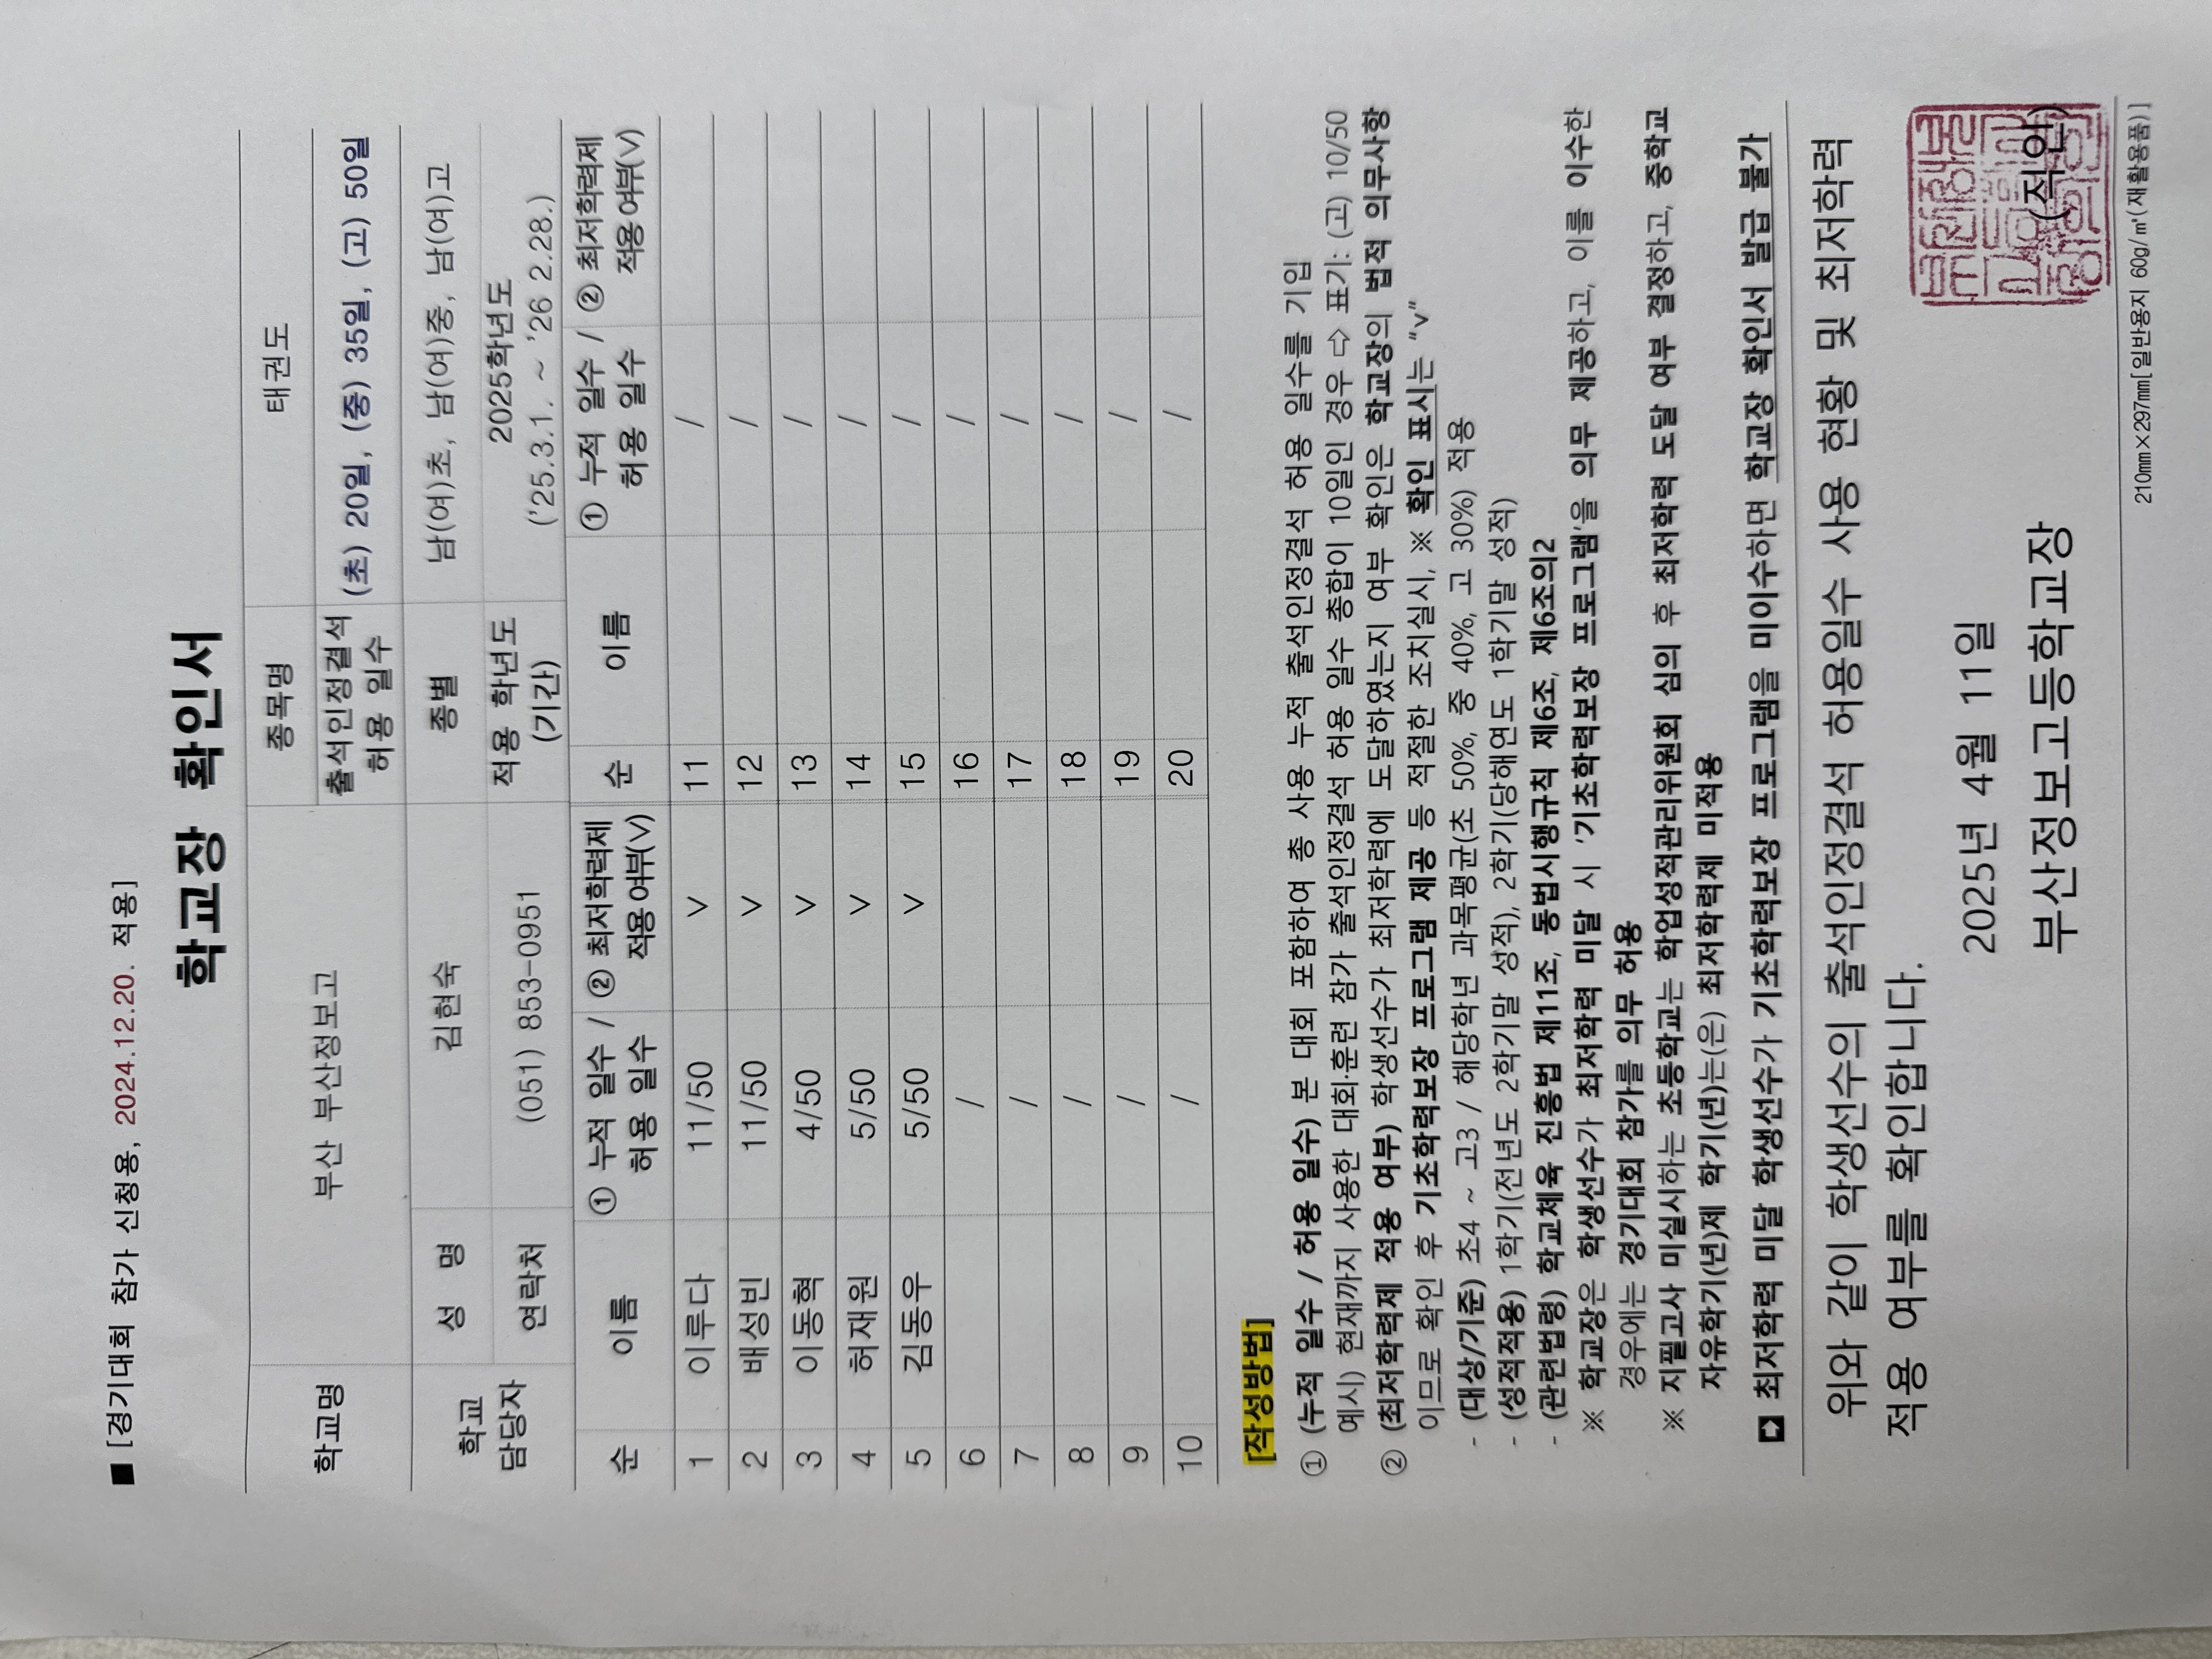 ■ [경기대회 참가 신청용, 2024.12.20. 적용]
학교장 확인서
학교명 부산 부산정보고 종목명 태권도
출석인정결석 허용 일수 (초) 20일, (중) 35일, (고) 50일
학교 담당자 성 명 김현숙 종별 남(여)초, 남(여)중, 남(여)고
연락처 (051) 853-0951 적용 학년도 (기간) 2025학년도 ('25.3.1. ~ '26 2.28.)
순 이름 ① 누적 일수 / 허용 일수 ② 최저학력제 적용여부(V) 순 이름 ① 누적 일수 / 허용 일수 ② 최저학력제 적용여부(V)
1 이루다 11/50 V 11 /
2 배성빈 11/50 V 12 /
3 이동혁 4/50 V 13 /
4 허재원 5/50 V 14 /
5 김동우 5/50 V 15 /
6 / 16 /
7 / 17 /
8 / 18 /
9 / 19 /
10 / 20 /
[작성방법]
① (누적 일수 / 허용 일수) 본 대회 포함하여 총 사용 누적 출석인정결석 허용 일수를 기입
예시) 현재까지 사용한 대회·훈련 참가 출석인정결석 허용 일수 총합이 10일인 경우 ⇨ 표기: (고) 10/50
② (최저학력제 적용 여부) 학생선수가 최저학력에 도달하였는지 여부 확인은 학교장의 법적 의무사항
이므로 확인 후 기초학력보장 프로그램 제공 등 적절한 조치실시, ※ 확인 표시는 "v"
- (대상/기준) 초4 ~ 고3 / 해당학년 과목평균(초 50%, 중 40%, 고 30%) 적용
- (성적적용) 1학기(전년도 2학기말 성적), 2학기(당해연도 1학기말 성적)
- (관련법령) 학교체육 진흥법 제11조, 동법시행규칙 제6조, 제6조의2
※ 학교장은 학생선수가 최저학력 미달 시 '기초학력보장 프로그램'을 의무 제공하고, 이를 이수한
경우에는 경기대회 참가를 의무 허용
※ 지필고사 미실시하는 초등학교는 학업성적관리위원회 심의 후 최저학력 도달 여부 결정하고, 중학교
자유학기(년)제 학기(년)는(은) 최저학력제 미적용
최저학력 미달 학생선수가 기초학력보장 프로그램을 미이수하면 학교장 확인서 발급 불가
위와 같이 학생선수의 출석인정결석 허용일수 사용 현황 및 최저학력
적용 여부를 확인합니다.
2025년 4월 11일
부산정보고등학교장 (직인)
210mm×297mm[일반용지 60g/㎡(재활용품)]